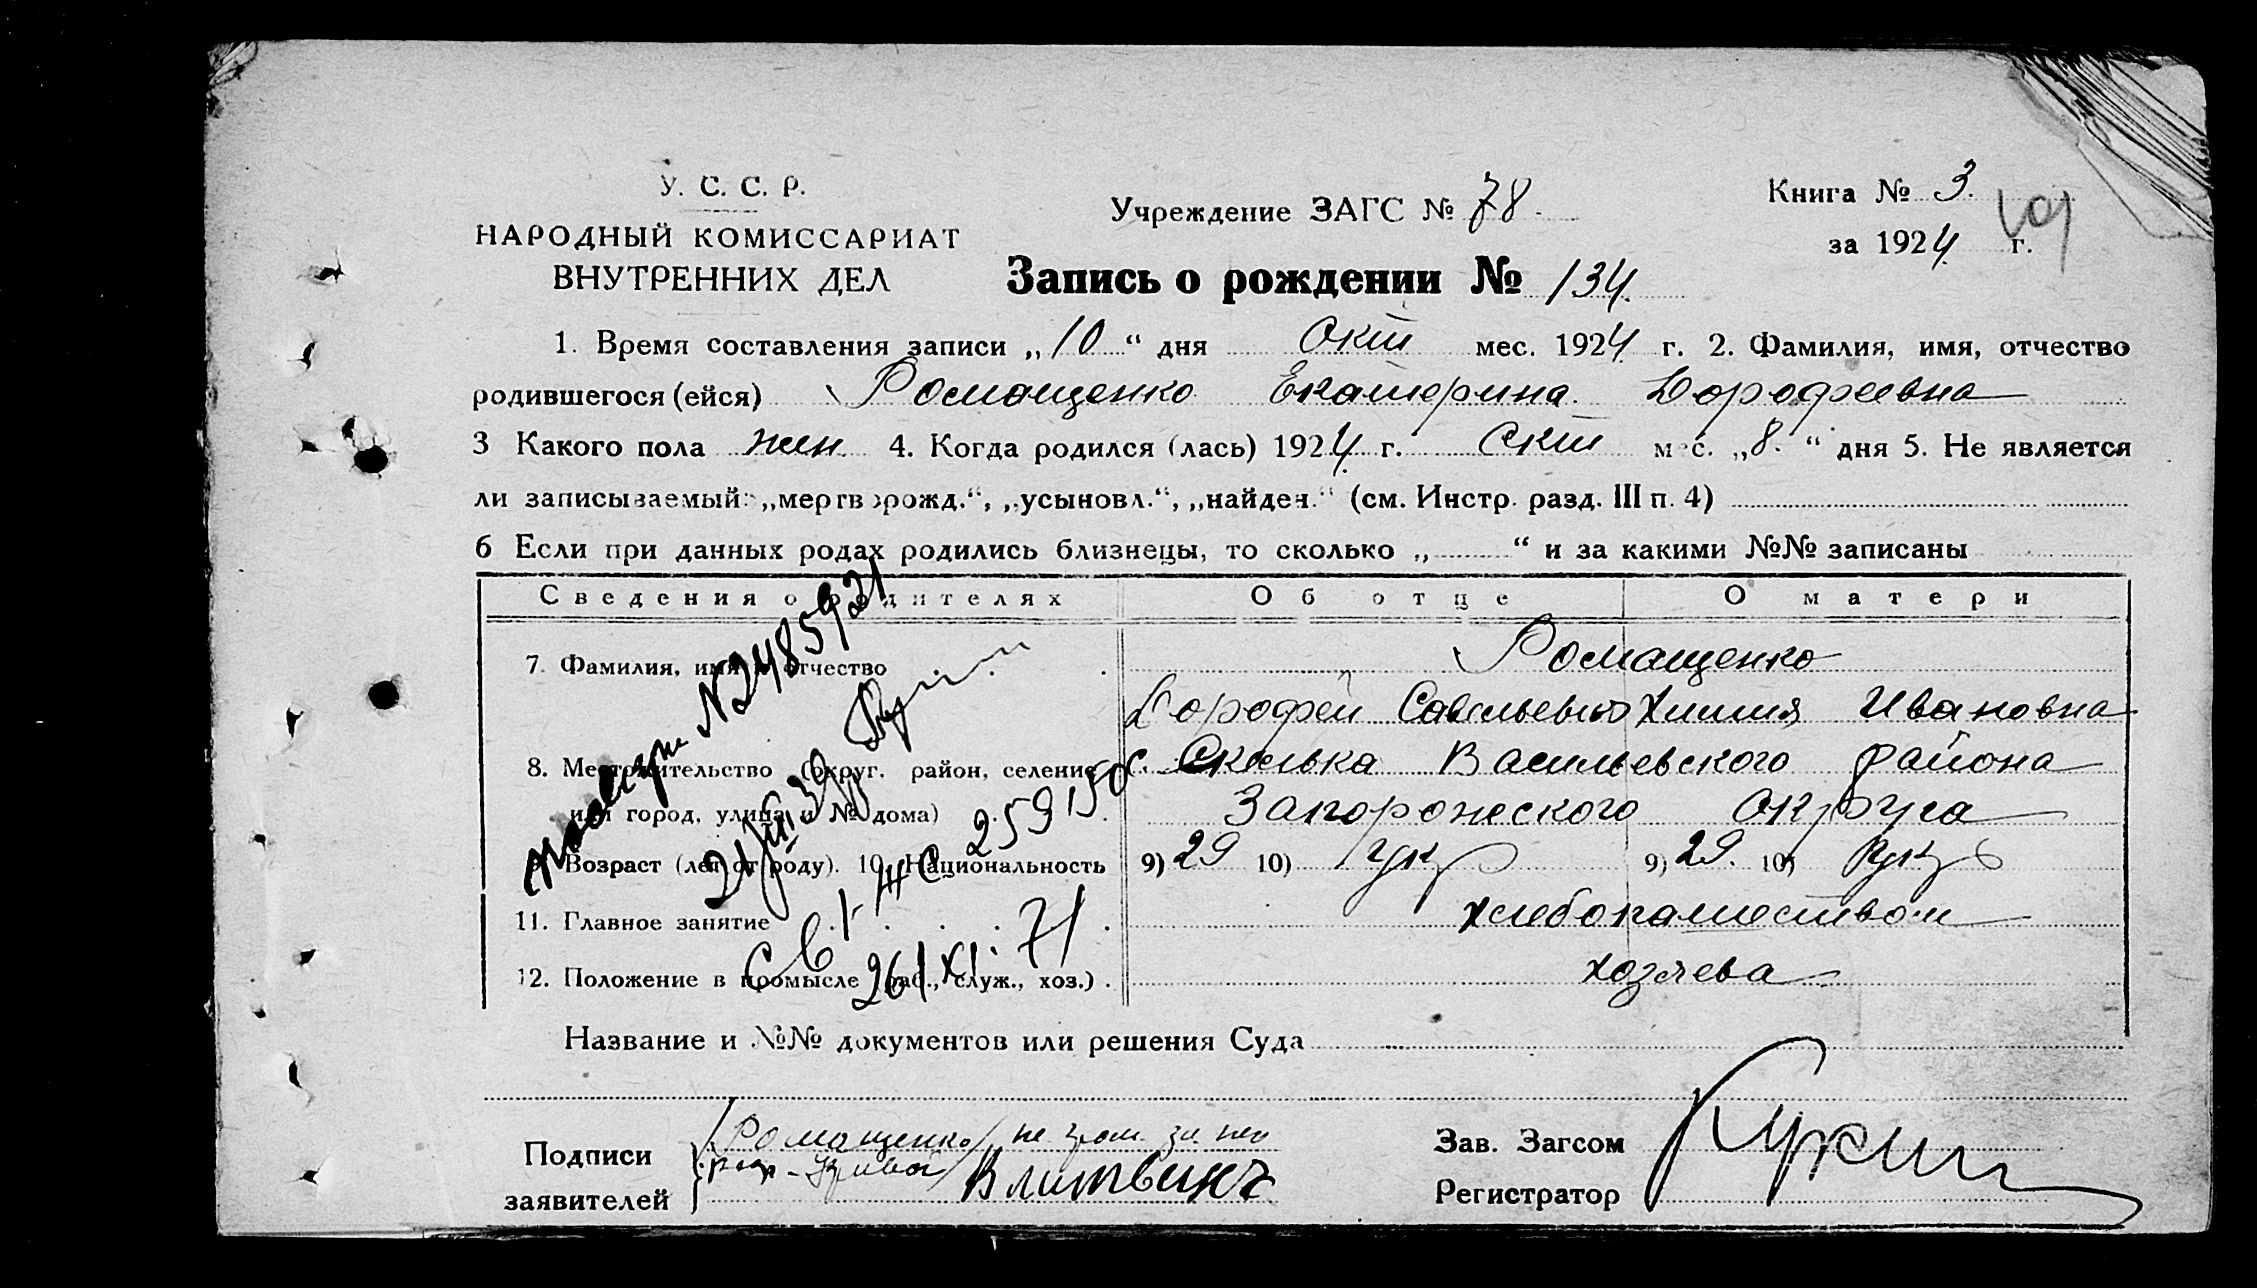 У. С. С. Р.
НАРОДНЫЙ КОМИССАРИАТ
ВНУТРЕННИХ ДЕЛ
Учреждение ЗАГС № 78.
Книга № 3.
за 1924 г.
Запись о рождении № 134.
1. Время составления записи „10“ дня Окт мес. 1924 г. 2. Фамилия, имя, отчество
родившегося (ейся) Ромащенко Екатерина Дорофеевна
3 Какого пола жен 4. Когда родился (лась) 1924 г. Окт мес. „8.“ дня 5. Не является
ли записываемый: „мертворожд.“, „усыновл.“, „найден.“ (см. Инстр. разд. III п. 4)
6 Если при данных родах родились близнецы, то сколько „ “ и за какими №№ записаны
Сведения о родителях Об отце О матери
7. Фамилия, имя и отчество Ромащенко
Дорофей Савельевич Ивановна
8. Местожительство (округ, район, селение с. Скелька Васильевского района
или город, улица и № дома) Запорожского округа
9. Возраст (лет от роду). 10. Национальность 9) 29 10) Укр 9) 29. 10) Укр
11. Главное занятие хлебопашеством
12. Положение в промысле (раб., служ., хоз.) хозяева
№2485921
259150
26/XI-71
Название и №№ документов или решения Суда
Подписи
заявителей
Ромащенко не грам. за нео
Влитвинъ
Зав. Загсом
Регистратор